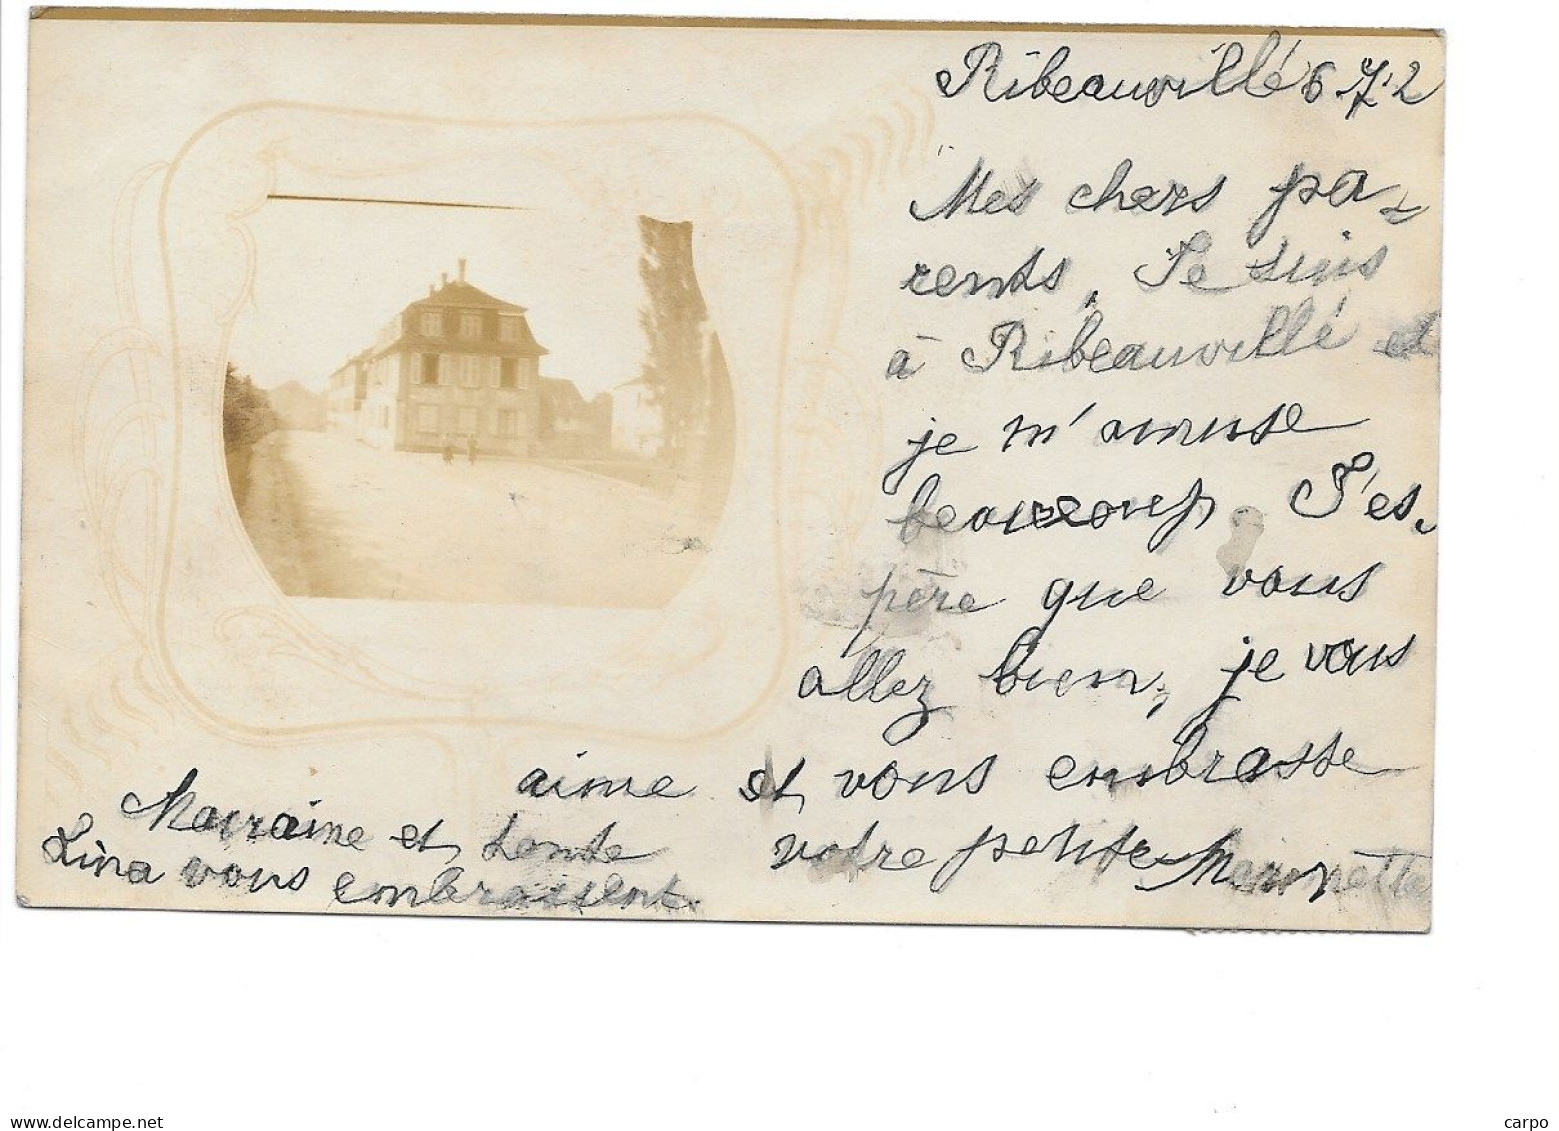 Ribeauvillé 6.7.2
Mes chers pa-
rents, Je suis
à Ribeauvillé et
je m'amuse
beaucoup. J'es-
père que vous
allez bien, je vous
aime et vous embrasse
votre petite
Marraine et tante
Lina vous embrassent.
delcampe.net
carpo